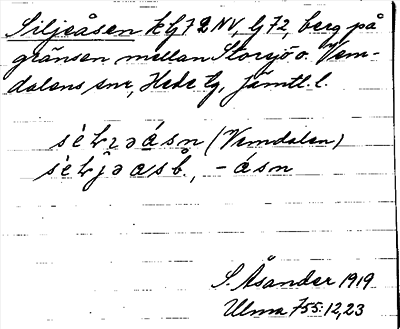 Siljeåsen kG72NV, lj72, berg på
gränsen mellan Storsjö o. Vem-
dalens snr, Hede tg. Jämtl. l.
(Vemdalen)
-ásn
S. Åsander 1919
Ulma 755:12,23